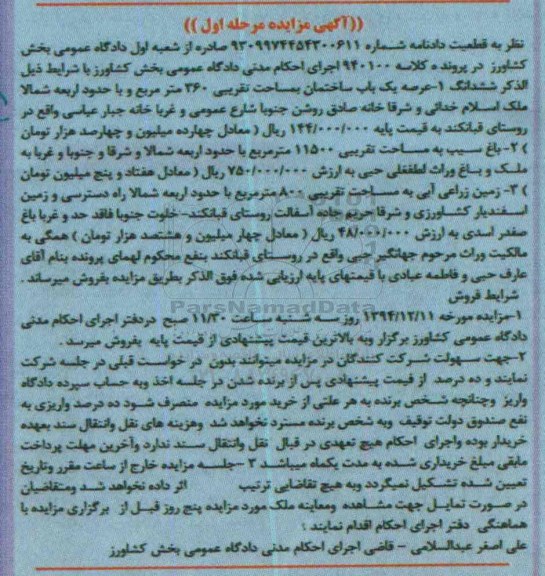 ((آگهی مزایده مرحله اول))
نظر به قطعیت دادنامه شماره ۹۳۰۹۹۷۴۴۵۴۳۰۰۶۱۱ صادره از شعبه اول دادگاه عمومی بخش
کشاورز در پرونده کلاسه ۹۴۰۱۰۰ اجرای احکام مدنی دادگاه عمومی بخش کشاورز با شرایط ذیل
الذکر ششدانگ ۱-عرصه یک باب ساختمان بمساحت تقریبی ۳۶۰ متر مربع و با حدود اربعه شمالا
ملک اسلام خدائی و شرقا خانه صادق روشن جنوبا شارع عمومی و غربا خانه جبار عباسی واقع در
روستای قبانکند به قیمت پایه ۱۴۴/۰۰۰/۰۰۰ ریال (معادل چهارده میلیون و چهارصد هزار تومان
) ۲- باغ سیب به مساحت تقریبی ۱۱۵۰۰ مترمربع با حدود اربعه شمالا و شرقا و جنوبا و غربا به
ملک و باغ وراث لطفعلی حبی به ارزش ۷۵۰/۰۰۰/۰۰۰ ریال (معادل هفتاد و پنج میلیون تومان
) ۳- زمین زراعی آبی به مساحت تقریبی ۸۰۰ مترمربع با حدود اربعه شمالا راه دسترسی و زمین
اسفندیار کشاورزی و شرقا حریم جاده آسفالت روستای قبانکند-خلوت جنوبا فاقد حد و غربا باغ
صفدر اسدی به ارزش ۴۸/۰۰۰/۰۰۰ ریال (معادل چهار میلیون و هشتصد هزار تومان) همگی به
مالکیت وراث مرحوم جهانگیر حبی واقع در روستای قبانکند بنفع محکوم لهمای پرونده بنام آقای
عارف حبی و فاطمه عبادی با قیمتهای پایه ارزیابی شده فوق الذکر بطریق مزایده بفروش میرساند .
شرایط فروش
۱-مزایده مورخه ۱۳۹۴/۱۲/۱۱ روز سه شنبه ساعت ۱۱/۳۰ صبح دردفتر اجرای احکام مدنی
دادگاه عمومی کشاورز برگزار وبه بالاترین قیمت پیشنهادی از قیمت پایه بفروش میرسد .
۲-جهت سهولت شرکت کنندگان در مزایده میتوانند بدون در خواست قبلی در جلسه شرکت
نمایند و ده درصد از قیمت پیشنهادی پس از برنده شدن در جلسه اخذ وبه حساب سپرده دادگاه
واریز وچنانچه شخص برنده به هر علتی از خرید مورد مزایده منصرف شود ده درصد واریزی به
نفع صندوق دولت توقیف وبه شخص برنده مسترد نخواهد شد وهزینه های نقل وانتقال سند بعهده
خریدار بوده واجرای احکام هیچ تعهدی در قبال نقل وانتقال سند ندارد وآخرین مهلت پرداخت
مابقی مبلغ خریداری شده به مدت یکماه میباشد ۳-جلسه مزایده خارج از ساعت مقرر وتاریخ
تعیین شده تشکیل نمیگردد وبه هیچ تقاضایی ترتیب اثر داده نخواهد شد ومتقاضیان
در صورت تمایل جهت مشاهده ومعاینه ملک مورد مزایده پنج روز قبل از برگزاری مزایده با
هماهنگی دفتر اجرای احکام اقدام نمایند ؛
علی اصغر عبدالسلامی - قاضی اجرای احکام مدنی دادگاه عمومی بخش کشاورز
ParsNamadData